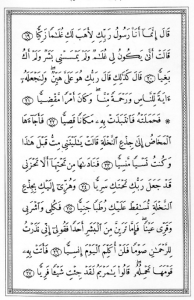 قَالَ إِنَّمَا أَنَا رَسُولُ رَبِّكِ لِأَهَبَ لَكِ غُلَٰمًا زَكِيًّا ١٩
قَالَتْ أَنَّىٰ يَكُونُ لِى غُلَٰمٌ وَلَمْ يَمْسَسْنِى بَشَرٌ وَلَمْ أَكُ
بَغِيًّا ٢٠ قَالَ كَذَٰلِكِ قَالَ رَبُّكِ هُوَ عَلَىَّ هَيِّنٌ وَلِنَجْعَلَهُۥ
ءَايَةً لِّلنَّاسِ وَرَحْمَةً مِّنَّا وَكَانَ أَمْرًا مَّقْضِيًّا ٢١
فَحَمَلَتْهُ فَٱنتَبَذَتْ بِهِۦ مَكَانًا قَصِيًّا ٢٢ فَأَجَآءَهَا
ٱلْمَخَاضُ إِلَىٰ جِذْعِ ٱلنَّخْلَةِ قَالَتْ يَٰلَيْتَنِى مِتُّ قَبْلَ هَٰذَا
وَكُنتُ نَسْيًا مَّنسِيًّا ٢٣ فَنَادَىٰهَا مِن تَحْتِهَآ أَلَّا تَحْزَنِى
قَدْ جَعَلَ رَبُّكِ تَحْتَكِ سَرِيًّا ٢٤ وَهُزِّىٓ إِلَيْكِ بِجِذْعِ
ٱلنَّخْلَةِ تُسَٰقِطْ عَلَيْكِ رُطَبًا جَنِيًّا ٢٥ فَكُلِى وَٱشْرَبِى
وَقَرِّى عَيْنًا فَإِمَّا تَرَيِنَّ مِنَ ٱلْبَشَرِ أَحَدًا فَقُولِىٓ إِنِّى نَذَرْتُ
لِلرَّحْمَٰنِ صَوْمًا فَلَنْ أُكَلِّمَ ٱلْيَوْمَ إِنسِيًّا ٢٦ فَأَتَتْ بِهِۦ
قَوْمَهَا تَحْمِلُهُۥ قَالُوا۟ يَٰمَرْيَمُ لَقَدْ جِئْتِ شَيْـًٔا فَرِيًّا ٢٧